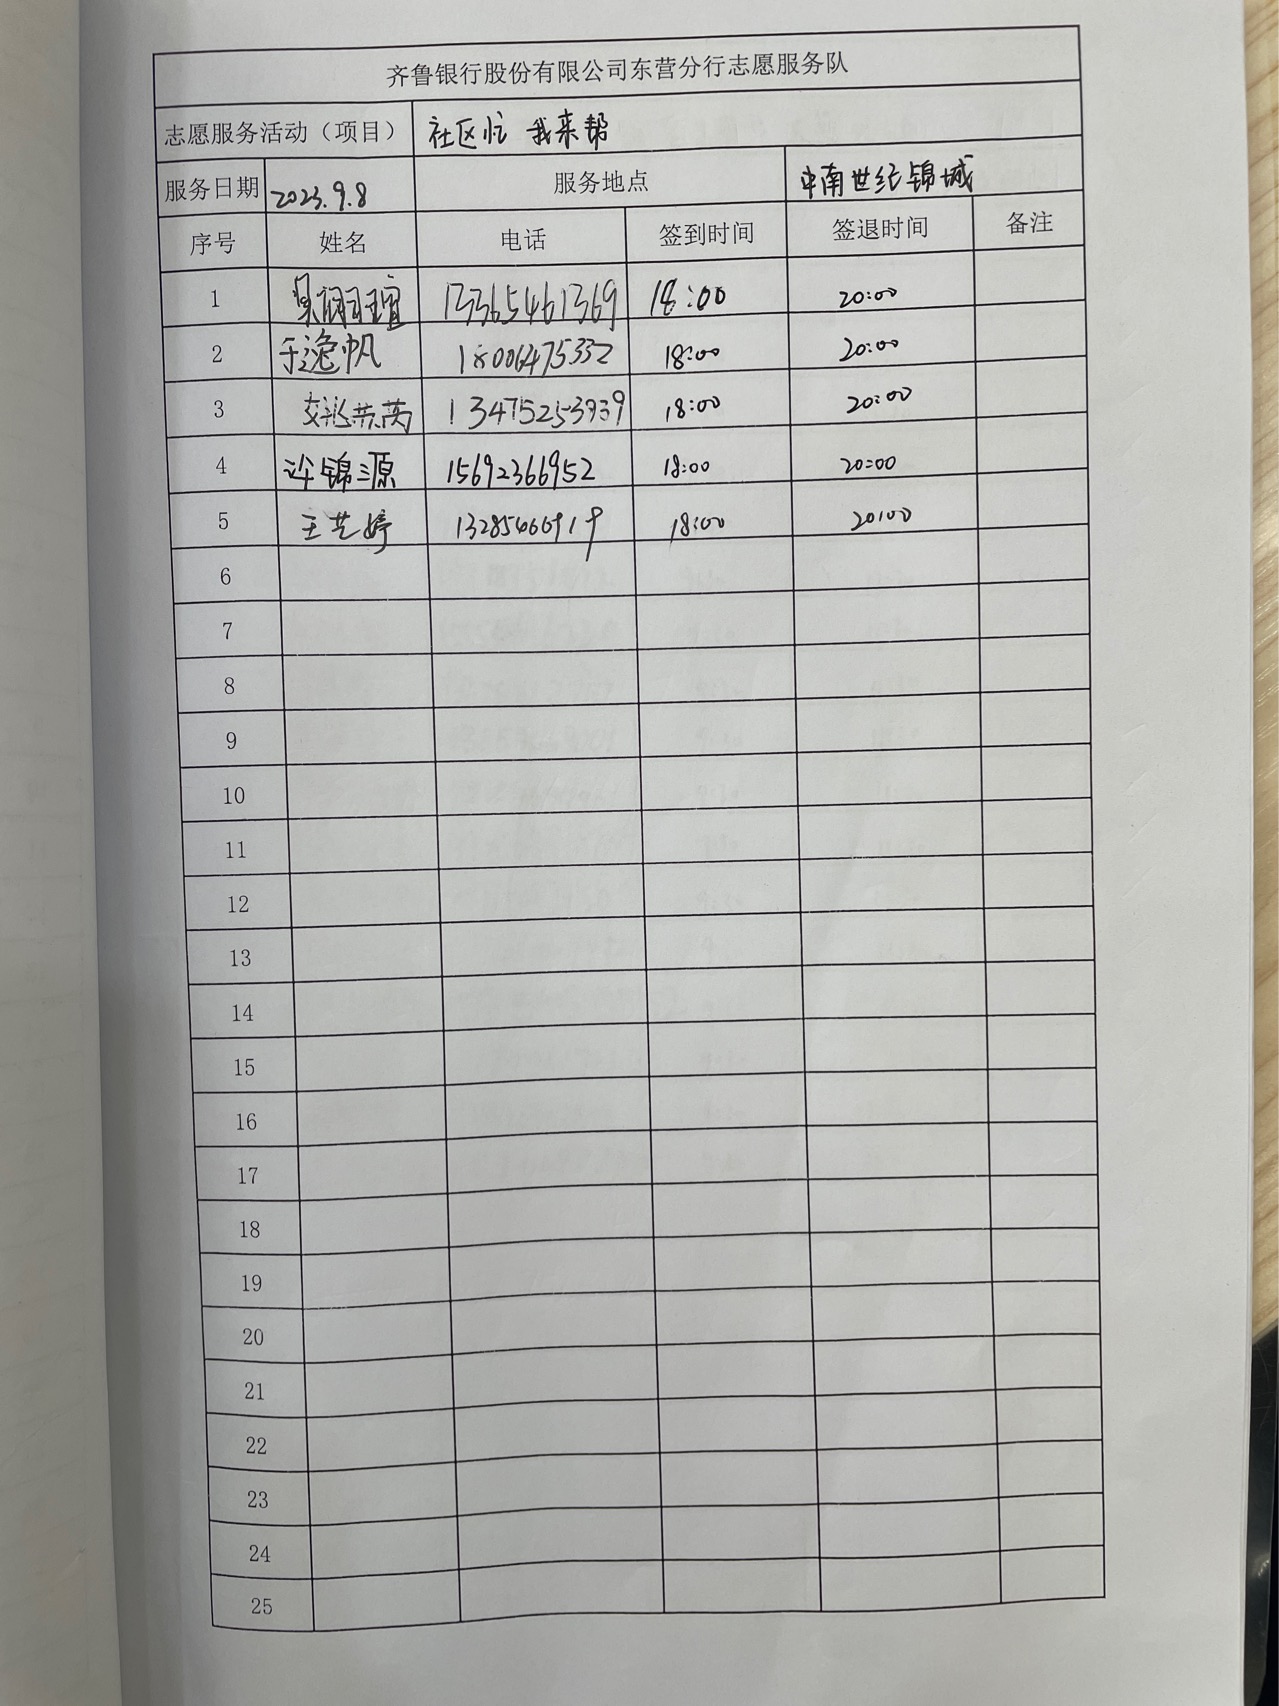 齐鲁银行股份有限公司东营分行志愿服务队
志愿服务活动（项目） 社区忙 我来帮
服务日期 2023.9.8 服务地点 中南世纪锦城
序号 姓名 电话 签到时间 签退时间 备注
1 13365461369 18:00 20:00
2 于逸帆 18006475332 18:00 20:00
3 13475253939 18:00 20:00
4 许锦源 15692366952 18:00 20:00
5 王艺婷 18:00 20:00
6
7
8
9
10
11
12
13
14
15
16
17
18
19
20
21
22
23
24
25